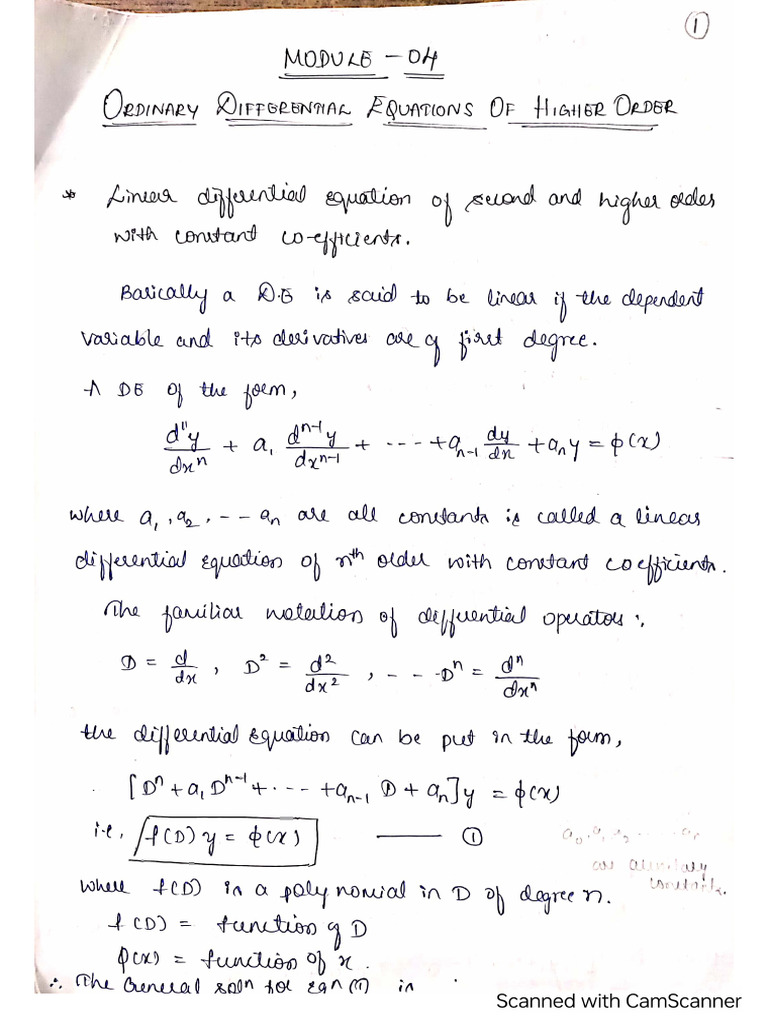 ①
MODULE - 04
ORDINARY DIFFERENTIAL EQUATIONS OF HIGHER ORDER
* Linear differential equation of second and higher order
with constant co-efficients.
Basically a D.E is said to be linear if the dependent
variable and its derivatives are of first degree.
A DE of the form,
dⁿy/dxⁿ + a₁ dⁿ⁻¹y/dxⁿ⁻¹ + --- + aₙ₋₁ dy/dx + aₙy = ϕ(x)
where a₁, a₂, -- aₙ are all constants is called a linear
differential equation of nth order with constant coefficients.
The familiar notation of differential operators :,
D = d/dx , D² = d²/dx² , - - - Dⁿ = dⁿ/dxⁿ
the differential equation can be put in the form,
[Dⁿ + a₁Dⁿ⁻¹ + . --- + aₙ₋₁ D + aₙ]y = ϕ(x)
i.e, f(D) y = ϕ(x) —— ①
a₀, a₁, a₂ ....
are
constants.
where f(D) is a polynomial in D of degree n.
f(D) = function of D
ϕ(x) = function of x.
∴ The General soln for eqn (1) is
Scanned with CamScanner